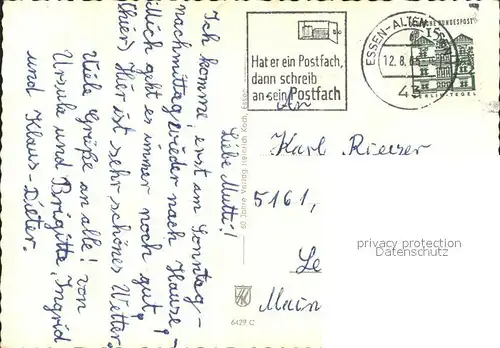 Liebe Mutti!
Ich komme erst am Sonntag-
nachmittag wieder nach Hause,
geht es immer noch gut,
(hier) Hier ist sehr schönes Wetter.
Viele Grüße an alle! von
Ursula und Brigitte, Ingrid
und Klaus-Dieter.
60 Jahre Verlag Heinrich Koch, Essen
6429 C
Hat er ein Postfach,
dann schreib
an sein Postfach
ESSEN-ALTEN
12.8.65
43
DEUTSCHE BUNDESPOST
15
BERLIN-TEGEL
An
Karl Rieser
5161,
privacy protection
Datenschutz
Le
Main